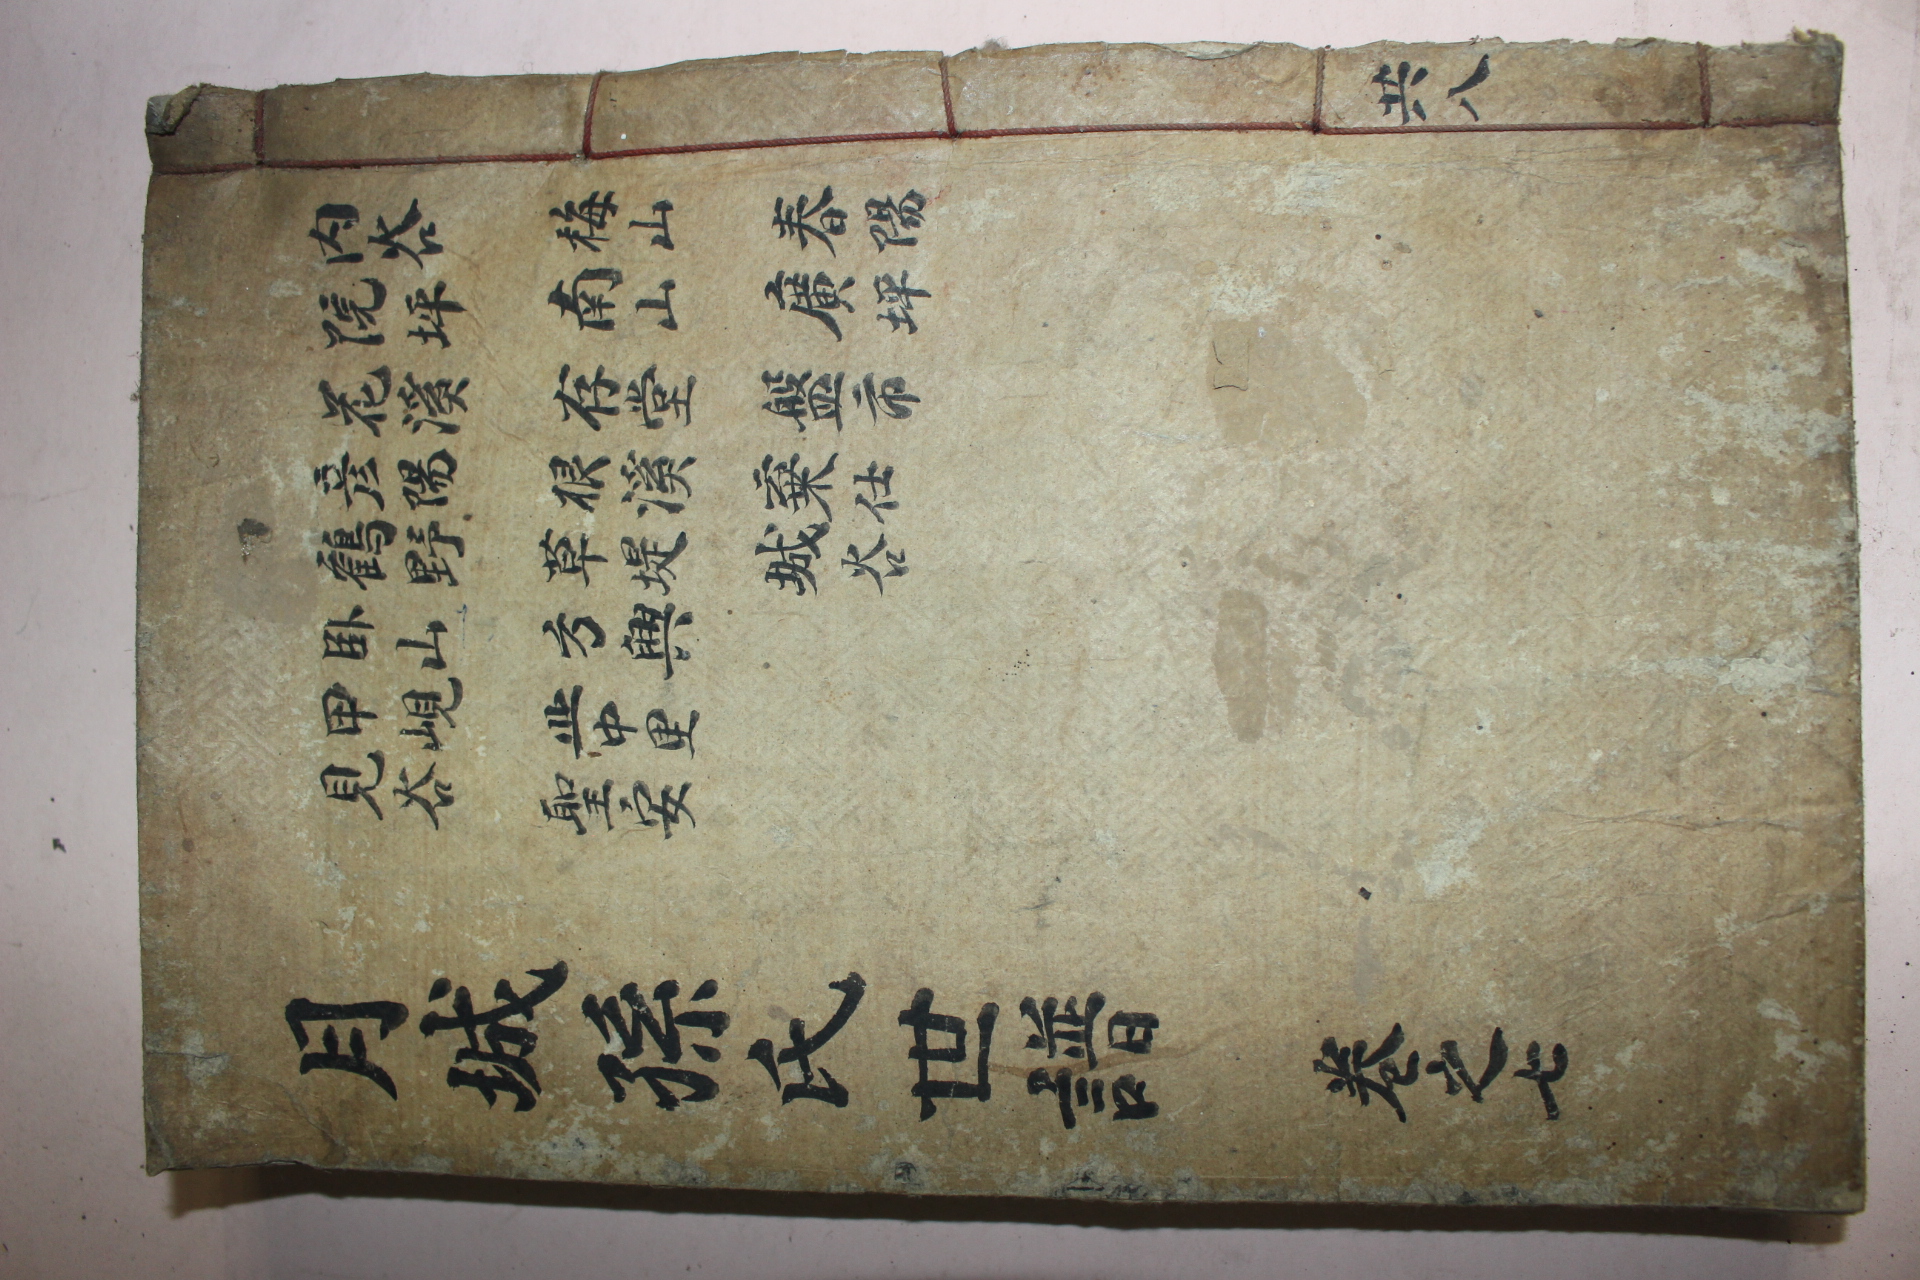 共八
內谷
院坪
花溪
彦陽
鶴野
卧山
甲峴
見谷
梅山
南山
存堂
根溪
草堤
方興
中里
聖安
春陽
廣坪
盤市
仕
城谷
月城孫氏世譜
卷之七